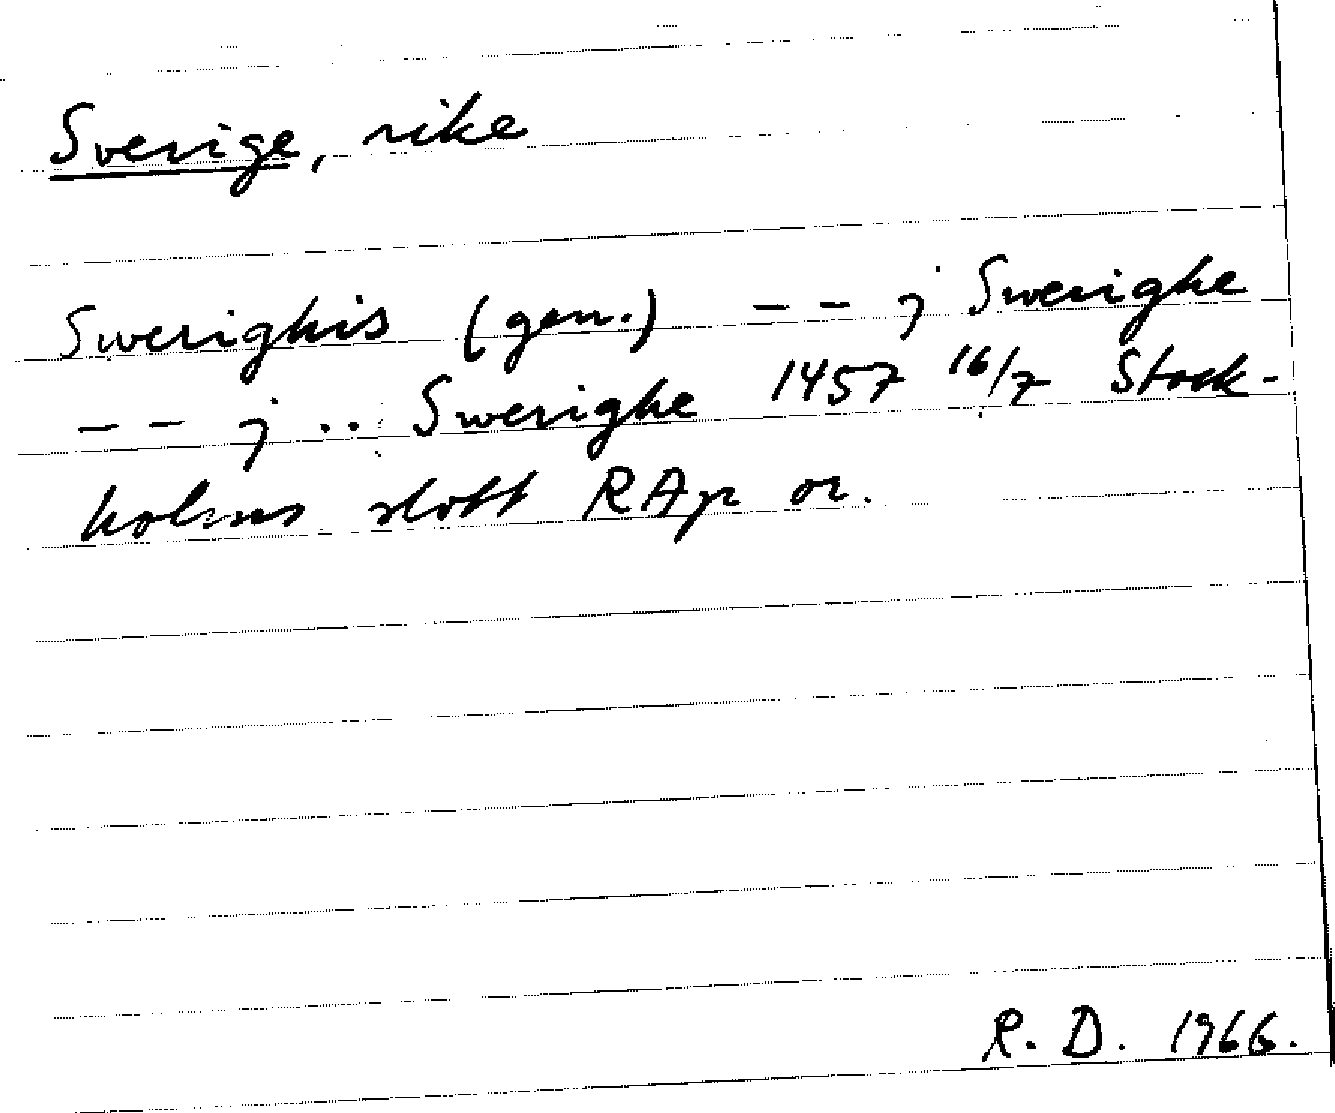 Sverige, rike
Swerighis (gen.) -- j Swerighe
-- j .. Swerighe 1457 16/7 Stock-
holms slott RAp or.
R. D. 1966.